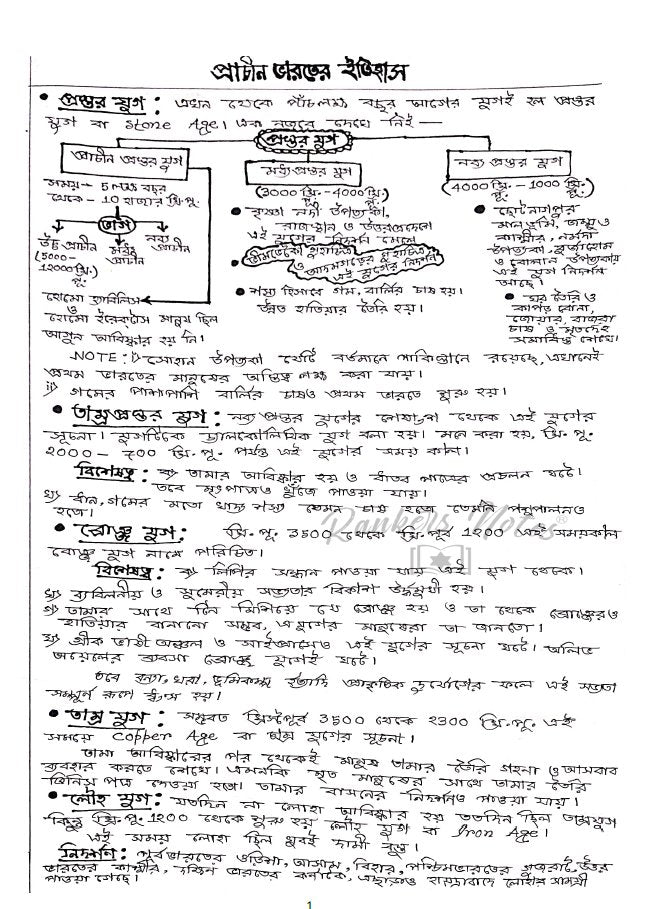 প্রাচীন ভারতের ইতিহাস
• প্রস্তর যুগ : এখন থেকে পাঁচলক্ষ বছর আগের যুগই হল প্রস্তর
যুগ বা Stone Age। এক নজরে দেখে নিই —
প্রস্তর যুগ
প্রাচীন প্রস্তর যুগ
সময় – 5 লক্ষ বছর
থেকে – 10 হাজার খ্রি.পূ.
ভাগ
নিম্ন প্রাচীন
(5000-
12000 খ্রি.)
মধ্য
প্রাচীন
নব্য
প্রাচীন
হোমো হ্যাবিলিস
ও
হোমো ইরেকটাস মানুষ ছিল
আগুন আবিষ্কার হয় নি।
মধ্য প্রস্তর যুগ
(3000 খ্রি. – 4000 খ্রি. পূ.)
• কৃষ্ণা নদী উপত্যকা,
রাজস্থান ও উত্তরপ্রদেশে
এই যুগের নিদর্শন মেলে
ভীমবেটকা গুহাচিত্র
ও আদমগড়ের গুহাচিত্র
এই যুগের নিদর্শন
• শস্য হিসাবে গম, বার্লির চাষ হয়।
উন্নত হাতিয়ার তৈরি হয়।
নব্য প্রস্তর যুগ
(4000 খ্রি. – 1000 খ্রি. পূ.)
• ছোটনাগপুর
মালভূমি, জম্মু ও
কাশ্মীর, নর্মদা
উপত্যকা, বুর্জাহোম
ও বোলান উপত্যকায়
এই যুগ নিদর্শন
আছে।
• ঘর তৈরি ও
কাপড় বোনা,
জোয়ার, বাজরা
চাষ ও মৃতদেহ
সমাধিস্থ শেখে।
NOTE : i) সোহান উপত্যকা যেটি বর্তমানে পাকিস্তানে রয়েছে, এখানেই
প্রথম ভারতের মানুষের অস্তিত্ব লক্ষ করা যায়।
ii) গমের পাশাপাশি বার্লির চাষও প্রথম ভারতে শুরু হয়।
• তাম্রপ্রস্তর যুগ : নব্য প্রস্তর যুগের শেষভাগ থেকে এই যুগের
সূচনা। যুগটিকে চ্যালকোলিথিক যুগ বলা হয়। মনে করা হয়, খ্রি. পূ.
2000 – 700 খ্রি. পূ. পর্যন্ত এই যুগের সময় কাল।
বিশেষত্ব : ক) তামার আবিষ্কার হয় ও ধাতব পাত্রের প্রচলন ঘটে।
তবে মৃৎপাত্রও খুঁজে পাওয়া যায়।
খ) ধান, গমের মতো খাদ্য শস্য যেমন চাষ হতো তেমনি পশুপালনও
হতো।
• ব্রোঞ্জ যুগ : খ্রি. পূ. 3500 থেকে খ্রি.পূর্ব 1200 এই সময়কাল
ব্রোঞ্জ যুগ নামে পরিচিত।
Rankers Notes®
বিশেষত্ব : ক) লিপির সন্ধান পাওয়া যায় এই যুগ থেকে।
খ) ব্যাবিলনীয় ও সুমেরীয় সভ্যতার বিকাশ ঊর্ধ্বমুখী হয়।
গ) তামার সাথে টিন মিশিয়ে যে ব্রোঞ্জ হয় ও তা থেকে ব্রোঞ্জেরও
হাতিয়ার বানানো সম্ভব, এ যুগের মানুষেরা তা জানতো।
ঘ) গ্রীক ভাষী অঞ্চল ও আইল্যান্ডেও এই যুগের সূচনা ঘটে। অলিভ
অয়েলের ব্যবসা ব্রোঞ্জ যুগেই ঘটে।
তবে বন্যা, খরা, ভূমিকম্প ইত্যাদি প্রাকৃতিক দুর্যোগের ফলে এই সভ্যতা
সম্পূর্ণ রূপে ধ্বংস হয়।
• তাম্র যুগ : সম্ভবত খ্রিস্টপূর্ব 3500 থেকে 2300 খ্রি.পূ. এই
সময়ে Copper Age বা তাম্র যুগের সূচনা।
তামা আবিষ্কারের পর থেকেই মানুষ তামার তৈরি গহনা ও আসবাব
ব্যবহার করতে শেখে। এমনকি মৃত মানুষের সাথে তামার তৈরি
জিনিস পত্র দেওয়া হতো। তামার বাসনের নিদর্শনও পাওয়া যায়।
• লৌহ যুগ : যতদিন না লোহা আবিষ্কার হয় ততদিন ছিল তাম্রযুগ
কিন্তু খ্রি.পূ. 1200 থেকে শুরু হয় লৌহ যুগ বা Iron Age।
এই সময় লোহা ছিল খুবই দামী বস্তু।
নিদর্শন : পূর্ব ভারতের ওড়িশা, আসাম, বিহার, পশ্চিমভারতের গুজরাট, উত্তর
ভারতের কাশ্মীর, দক্ষিণ ভারতের কর্ণাটক, এছাড়াও হায়দ্রাবাদে লোহার সামগ্রী
পাওয়া গেছে।
1